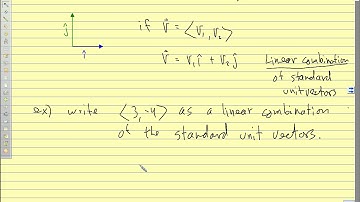 ĵ
î
if v⃗ = ⟨v₁, v₂⟩
v⃗ = v₁î + v₂ĵ
Linear combination
of standard
unit vectors
ex) write ⟨3,-4⟩ as a linear combination
of the standard unit vectors.